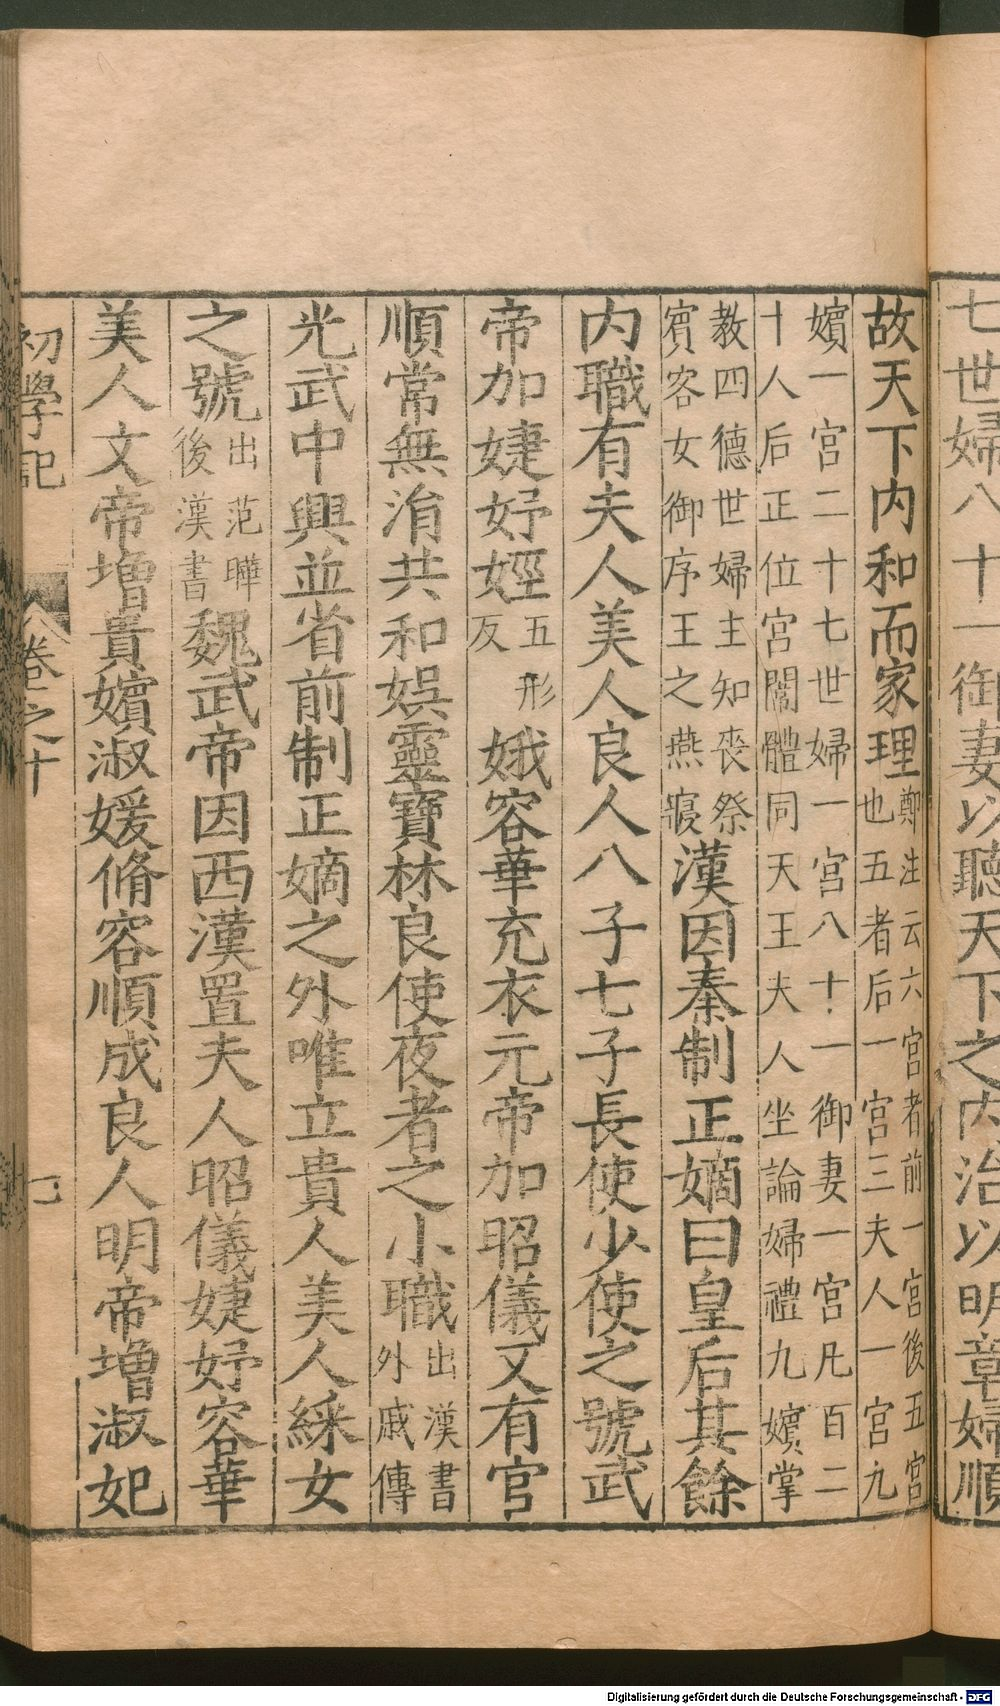 七世婦八十一御妻以聽天下之内治以明章婦順
故天下内和而家理鄭注云六宮者前一宮後五宮也五者后一宮三夫人一宮九
嬪一宮二十七世婦一宮八十一御妻一宮凡百二十人后正位宮闈體同天王夫人坐論婦禮九嬪掌
教四德世婦主知喪祭賓客女御序王之燕寢漢因秦制正嫡曰皇后其餘
内職有夫人美人良人八子七子長使少使之號武
帝加婕妤娙五形反娥容華充衣元帝加昭儀又有官
順常無涓共和娛靈寶林良使夜者之小職出漢書外戚傳
光武中興並省前制正嫡之外唯立貴人美人綵女
之號出范曄後漢書魏武帝因西漢置夫人昭儀婕妤容華
美人文帝增貴嬪淑媛脩容順成良人明帝增淑妃
初學記 卷之十 一
Digitalisierung gefördert durch die Deutsche Forschungsgemeinschaft - DFG